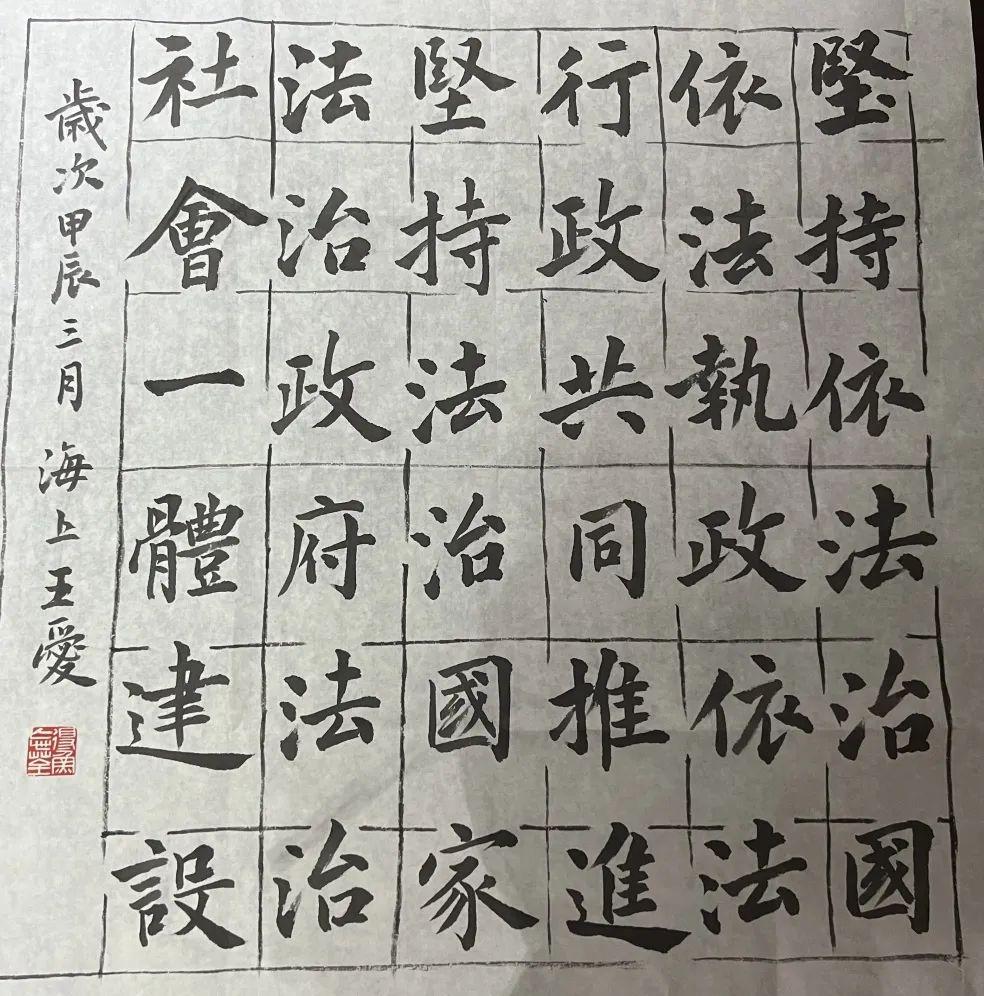 堅持依法治國
依法執政依法
行政共同推進
堅持法治國家
法治政府法治
社會一體建設
歲次甲辰三月 海上王愛